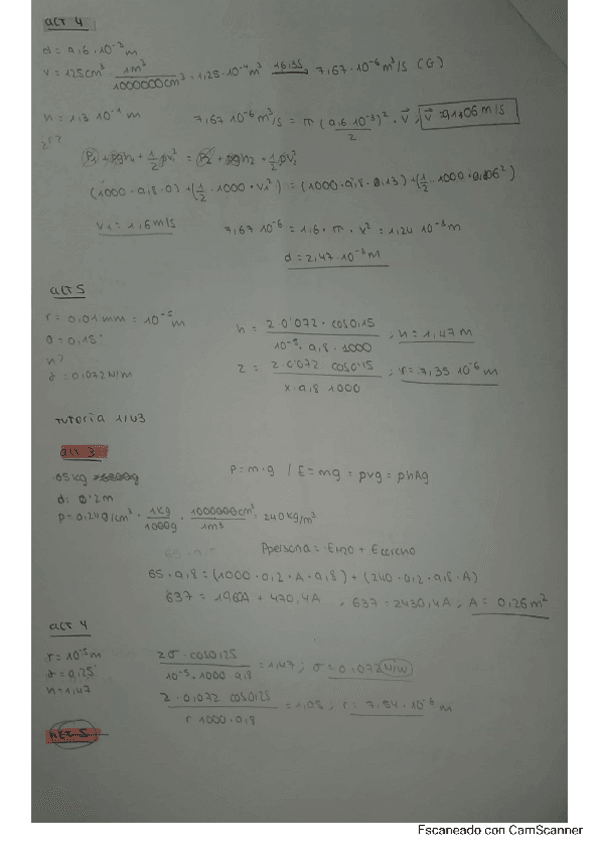 ACT 4
d = 9,6 · 10⁻³ m
V = 125cm³ · 1m³ / 1000000cm³ = 1,25 · 10⁻⁴ m³ 16,3s → 7,67 · 10⁻⁶ m³/s (G)
h = 1,3 10⁻¹ m
7,67 10⁻⁶ m³/s = π (9,6 10⁻³ / 2)² · v⃗ ; v⃗ = 0,106 m/s
¿r?
P₁ + ρgh₁ + 1/2 ρv₁² = P₂ + ρgh₂ + 1/2 ρv₂²
(1000 · 9,8 · 0) + (1/2 · 1000 · v₁²) = (1000 · 9,8 · 0,13) + (1/2 · 1000 · 0,106²)
v₁ = 1,6 m/s
7,67 10⁻⁶ = 1,6 · π · r² = 1,24 10⁻³ m
d = 2,47 · 10⁻³ m
ACT 5
r = 0,01 mm = 10⁻⁵ m
θ = 0,15°
h?
γ = 0,072 N/m
h = 2 0'072 · cos0,15 / 10⁻⁵ · 9,8 · 1000 ; h = 1,47 m
2 = 2 · 0'072 cos0'15 / x · 9,8 1000 ; r = 7,35 10⁻⁶ m
TUTORIA 1/U3
act 3
65kg
d: 0'2m
ρ = 0,240g/cm³ · 1kg / 1000g · 1000000cm³ / 1m³ = 240 kg/m³
P = m · g / E = mg = ρvg = ρhAg
Ppersona = EH2O + Ecorcho
65 · 9,8 = (1000 · 0,2 · A · 9,8) + (240 · 0,2 · 9,8 · A)
637 = 1960A + 470,4A , 637 = 2430,4A ; A = 0,26 m²
ACT 4
r = 10⁻⁵ m
γ = 0,25°
h = 1,47
2σ · cos0,25 / 10⁻⁵ · 1000 9,8 = 1,47 ; σ = 0,072 N/m
2 · 0,072 cos0,25 / r 1000 · 9,8 = ; r = 7,54 · 10⁻⁶ m
Escaneado con CamScanner